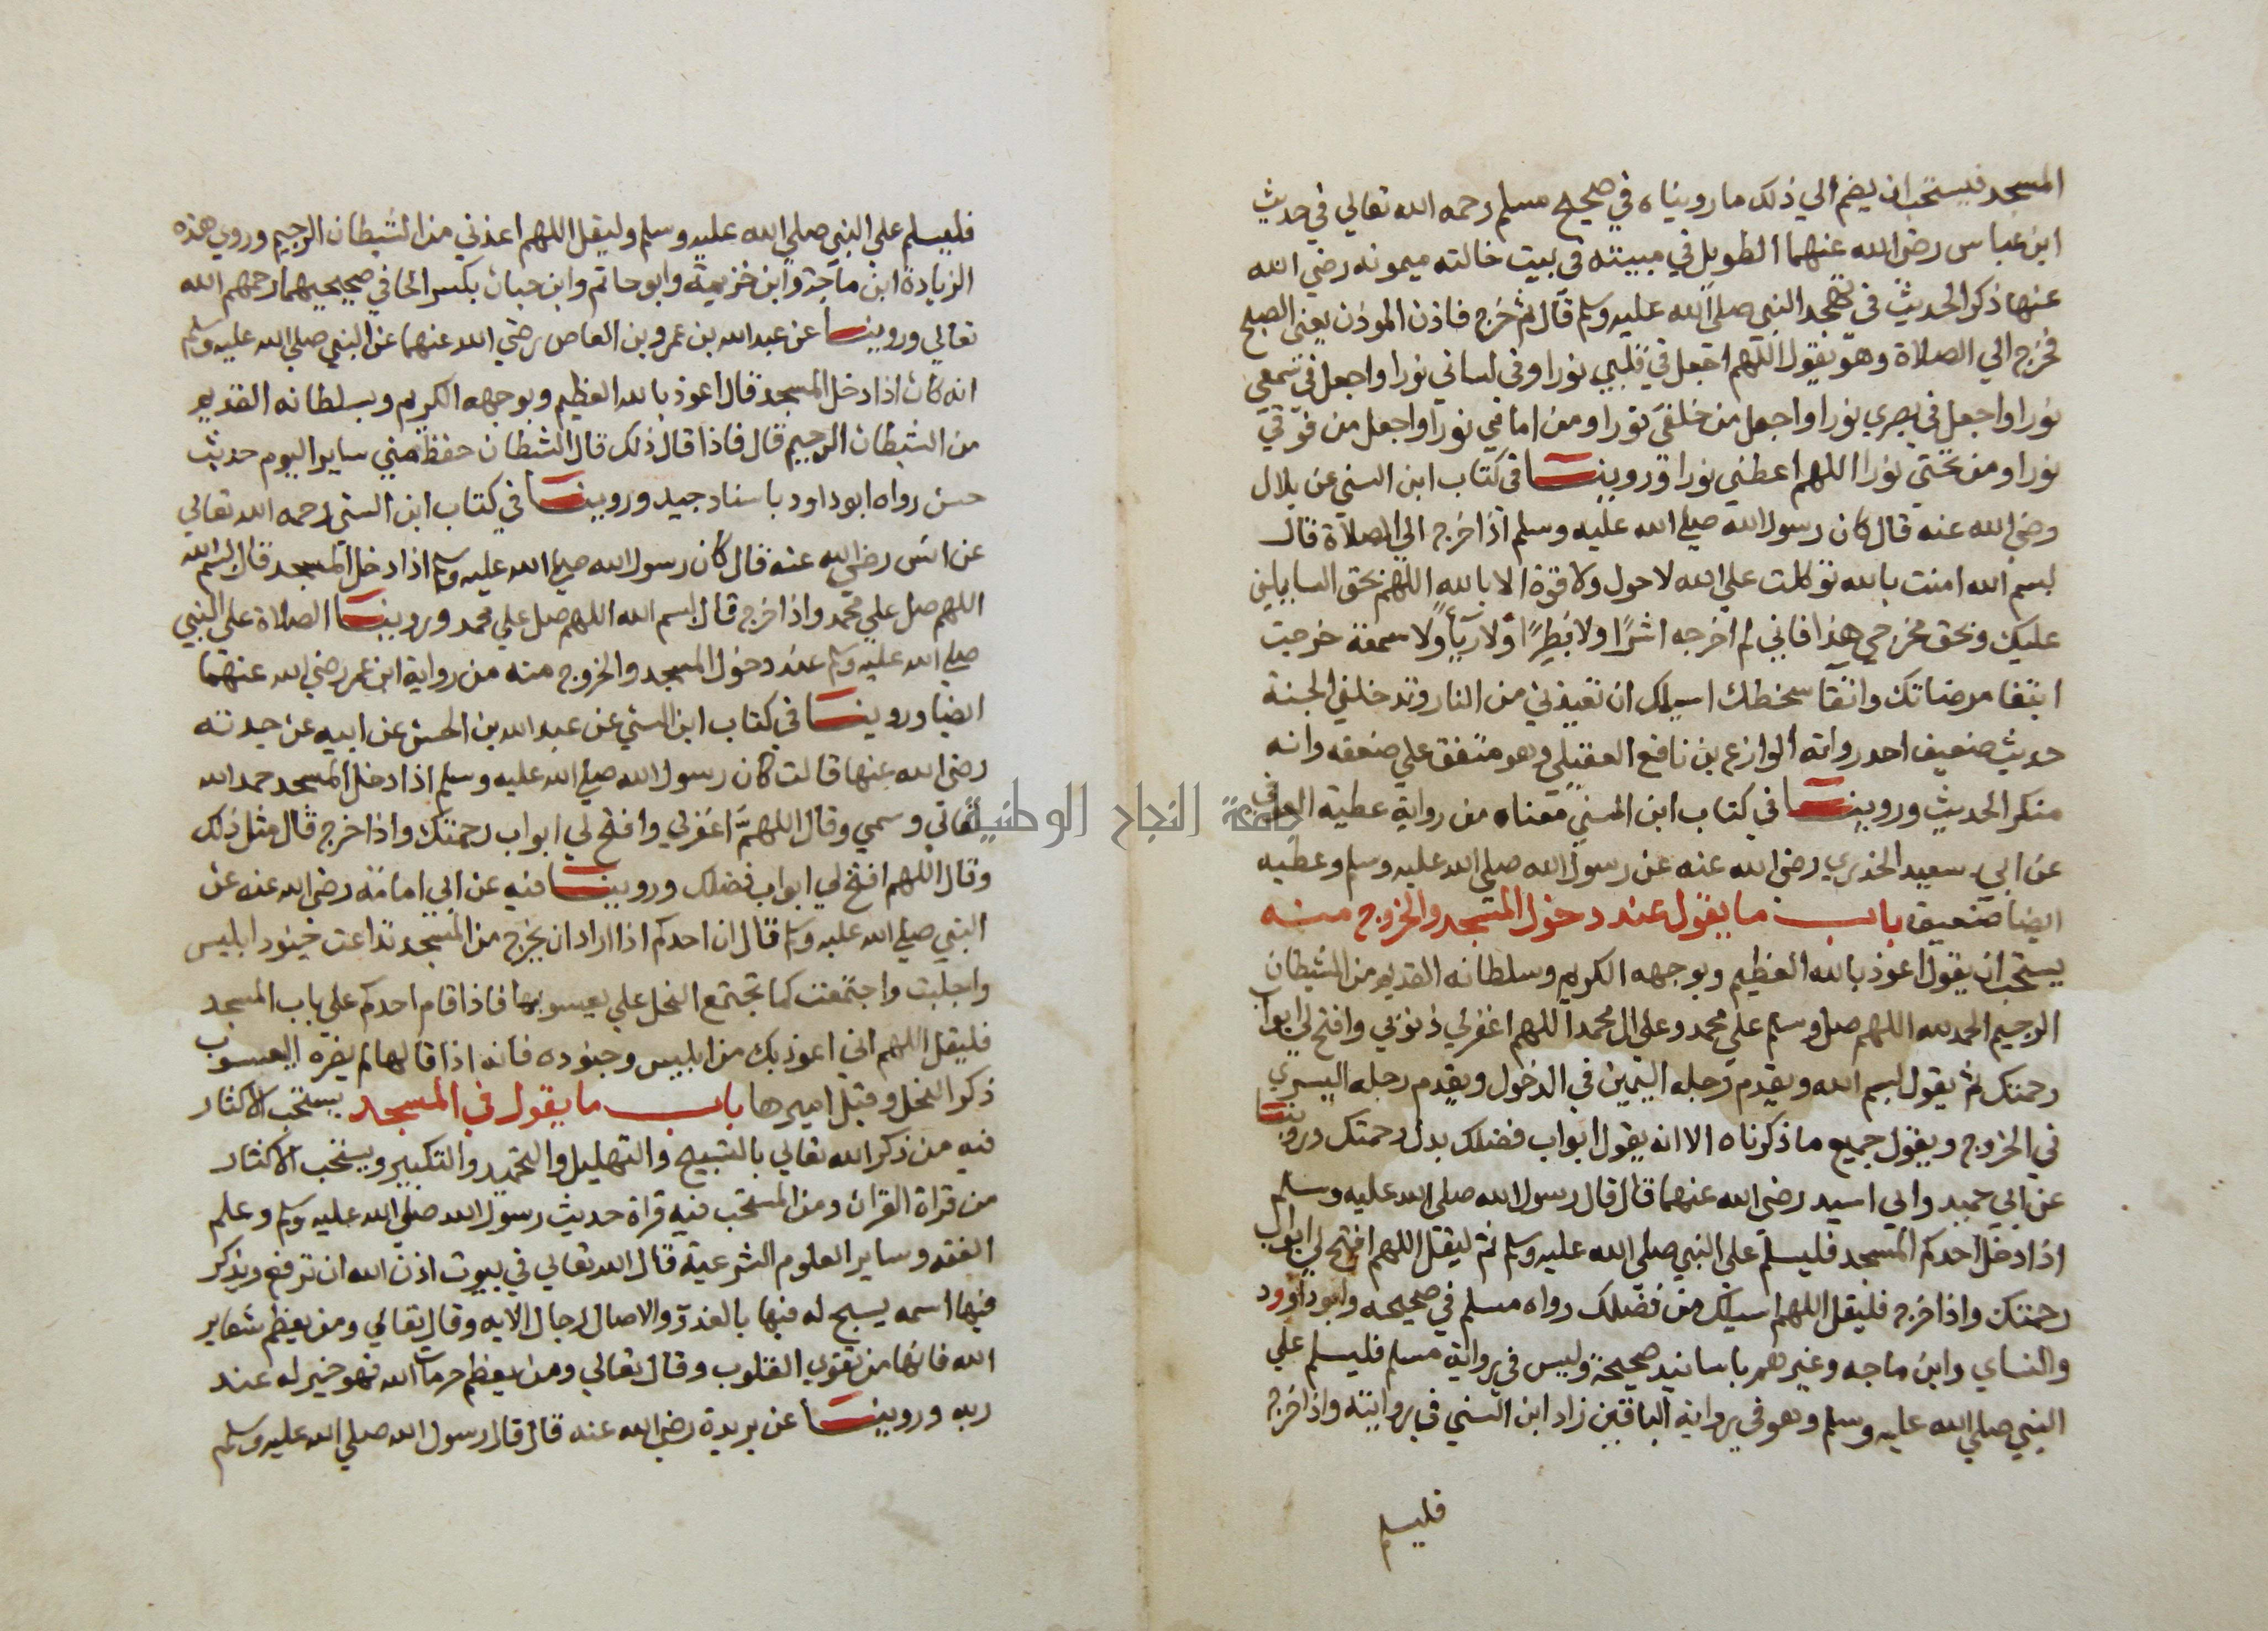 المسجد فيستحب ان يضم الي ذلك ما رويناه في صحيح مسلم رحمه الله تعالي في حديث
ابن عباس رضي الله عنهما الطويل في مبيته في بيت خالته ميمونه رضي الله
عنها ذكر الحديث في تهجد النبي صلي الله عليه وسلم قال ثم خرج فاذن الموذن يعني الصبح
فخرج الي الصلاة وهو يقول اللهم اجعل في قلبي نورا وفي لساني نورا واجعل في سمعي
نورا واجعل في بصري نورا واجعل من خلفي نورا ومن امامي نورا واجعل من فوقي
نورا ومن تحتي نورا اللهم اعطني نورا وروينا في كتاب ابن السني عن بلال
رضي الله عنه قال كان رسول الله صلي الله عليه وسلم اذا خرج الي الصلاة قال
بسم الله امنت بالله توكلت علي الله لا حول ولا قوة الا بالله اللهم بحق السايلين
عليك وبحق مخرجي هذا فاني لم اخرجه اشرًا ولا بطرًا ولا رياً ولا سمعة خرجت
ابتغا مرضاتك واتقا سخطك اسيلك ان تعيذني من النار وتدخلني الجنة
حديث ضعيف احد رواته الوازع بن نافع العقيلي وهو متفق علي ضعفه وانه
منكر الحديث وروينا في كتاب ابن السني معناه من رواية عطية العوفي
عن ابي سعيد الخذري رضي الله عنه عن رسول الله صلي الله عليه وسلم وعطيه
ايضا ضعيف باب ما يقول عند دخول المسجد والخروج منه
يستحب ان يقول اعوذ بالله العظيم وبوجهه الكريم وسلطانه القديم من الشيطان
الرجيم الحمد لله اللهم صل وسلم علي محمد وعلي ال محمد اللهم اغفر لي ذنوبي وافتح لي ابواب
رحمتك ثم يقول بسم الله ويقدم رجله اليمين في الدخول ويقدم رجله اليسري
في الخروج ويقول جميع ما ذكرناه الا انه يقول ابواب فضلك بدل رحمتك وروينا
عن ابي حميد وابي اسيد رضي الله عنهما قال قال رسول الله صلي الله عليه وسلم
اذا دخل احدكم المسجد فليسلم علي النبي صلي الله عليه وسلم ثم ليقل اللهم افتح لي ابواب
رحمتك واذا خرج فليقل اللهم اسيلك من فضلك رواه مسلم في صحيحه وابو داوود
والنساي وابن ماجه وغيرهم باسانيد صحيحة وليس في رواية مسلم فليسلم علي
النبي صلي الله عليه وسلم وهو في رواية الباقين زاد ابن السني في روايته واذا خرج
فليسلم
فليسلم علي النبي صلي الله عليه وسلم وليقل اللهم اعذني من الشيطان الرجيم وروي هذه
الزيادة ابن ماجة وابن خزيمة وابو حاتم وابن حبان بكسر الحا في صحيحيهما رحمهم الله
تعالي وروينا عن عبد الله بن عمرو بن العاص رضي الله عنهما عن النبي صلي الله عليه وسلم
انه كان اذا دخل المسجد قال اعوذ بالله العظيم وبوجهه الكريم وبسلطانه القديم
من الشيطان الرجيم قال فاذا قال ذلك قال الشطان حفظ مني ساير اليوم حديث
حسن رواه ابو داود باسناد جيد وروينا في كتاب ابن السني رحمه الله تعالي
عن انس رضي الله عنه قال كان رسول الله صلي الله عليه وسلم اذا دخل المسجد قال بسم الله
اللهم صل علي محمد واذا خرج قال بسم الله اللهم صل علي محمد وروينا الصلاة علي النبي
صلي الله عليه وسلم عند دخول المسجد والخروج منه من رواية ابن عمر رضي الله عنهما
ايضا وروينا في كتاب ابن السني عن عبد الله بن الحسن عن ابيه عن جدته
رضي الله عنها قالت كان رسول الله صلي الله عليه وسلم اذا دخل المسجد حمد الله
تعالي وسمي وقال اللهم اغفر لي وافتح لي ابواب رحمتك واذا خرج قال مثل ذلك
وقال اللهم افتح لي ابواب فضلك وروينا فيه عن ابي امامة رضي الله عنه عن
النبي صلي الله عليه وسلم قال ان احدكم اذا اراد ان يخرج من المسجد تداعت جنود ابليس
واجلبت واجتمعت كما تجتمع النحل علي يعسوبها فاذا قام احدكم علي باب المسجد
فليقل اللهم اني اعوذ بك من ابليس وجنوده فانه اذا قالها لم يضره اليعسوب
ذكر النحل وقيل اميرها باب ما يقول في المسجد يستحب الاكثار
فيه من ذكر الله تعالي بالتسبيح والتهليل والتحميد والتكبير ويستحب الاكثار
من قراة القران ومن المستحب فيه قراة حديث رسول الله صلي الله عليه وسلم وعلم
الفقه وساير العلوم الشرعية قال الله تعالي في بيوت اذن الله ان ترفع ويذكر
فيها اسمه يسبح له فيها بالغدو والاصال رجال الايه وقال تعالي ومن يعظم شعاير
الله فانها من تقوي القلوب وقال تعالي ومن يعظم حرمات الله فهو خير له عند
ربه وروينا عن بريدة رضي الله عنه قال قال رسول الله صلي الله عليه وسلم
جامعة النجاح الوطنية